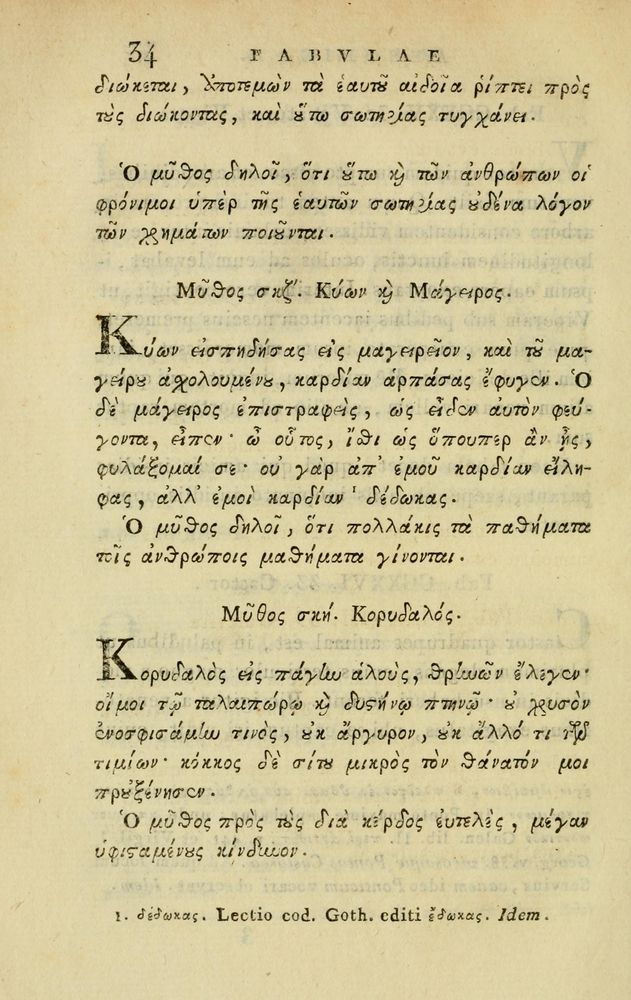 34 FABVLAE
διώκεται, ὑποτεμὼν τὰ ἑαυτοῦ αἰδοῖα ῥίπτει πρὸς
τοὺς διώκοντας, καὶ οὕτω σωτηρίας τυγχάνει.
Ὁ μῦθος δηλοῖ, ὅτι οὕτω καὶ τῶν ἀνθρώπων οἱ
φρόνιμοι ὑπὲρ τῆς ἑαυτῶν σωτηρίας οὐδένα λόγον
τῶν χρημάτων ποιοῦνται.
Μῦθος σκζ'. Κύων καὶ Μάγειρος.
Κύων εἰσπηδήσας εἰς μαγειρεῖον, καὶ τοῦ μα-
γείρου ἀσχολουμένου, καρδίαν ἁρπάσας ἔφυγεν. Ὁ
δὲ μάγειρος ἐπιστραφεὶς, ὡς εἶδεν αὐτὸν φεύ-
γοντα, εἶπεν· ὦ οὗτος, ἴσθι ὡς ὅπουπερ ἂν ᾖς,
φυλάξομαί σε· οὐ γὰρ ἀπ' ἐμοῦ καρδίαν εἴλη-
φας, ἀλλ' ἐμοὶ καρδίαν ¹ δέδωκας.
Ὁ μῦθος δηλοῖ, ὅτι πολλάκις τὰ παθήματα
τοῖς ἀνθρώποις μαθήματα γίνονται.
Μῦθος σκή. Κορυδαλός.
Κορυδαλὸς εἰς πάγην ἁλοὺς, θρηνῶν ἔλεγεν·
οἴμοι τῷ ταλαιπώρῳ καὶ δυστήνῳ πτηνῷ· οὐ χρυσὸν
ἐνοσφισάμην τινὸς, οὐκ ἄργυρον, οὐκ ἄλλό τι τῶν
τιμίων· κόκκος δὲ σίτου μικρὸς τὸν θάνατόν μοι
προὐξένησεν.
Ὁ μῦθος πρὸς τοὺς διὰ κέρδος εὐτελὲς, μέγαν
ὑφισταμένους κίνδυνον.
1. δέδωκας. Lectio cod. Goth. editi ἔδωκας. Idem.